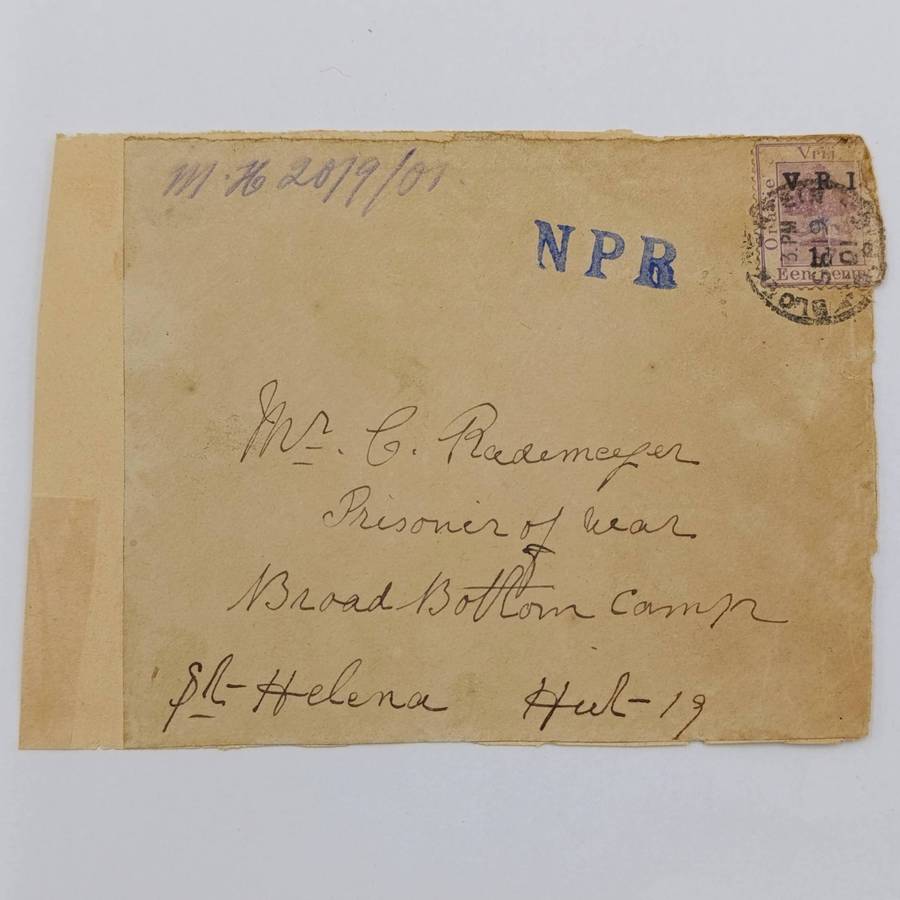 M. H 20/9/01
NPR
Vrij
Oranje
V. R. I
1d
Een penny
3. PM
BLO
Mr. C. Rademeyer
Prisoner of war
Broad Bottom Camp
St Helena Hut 19